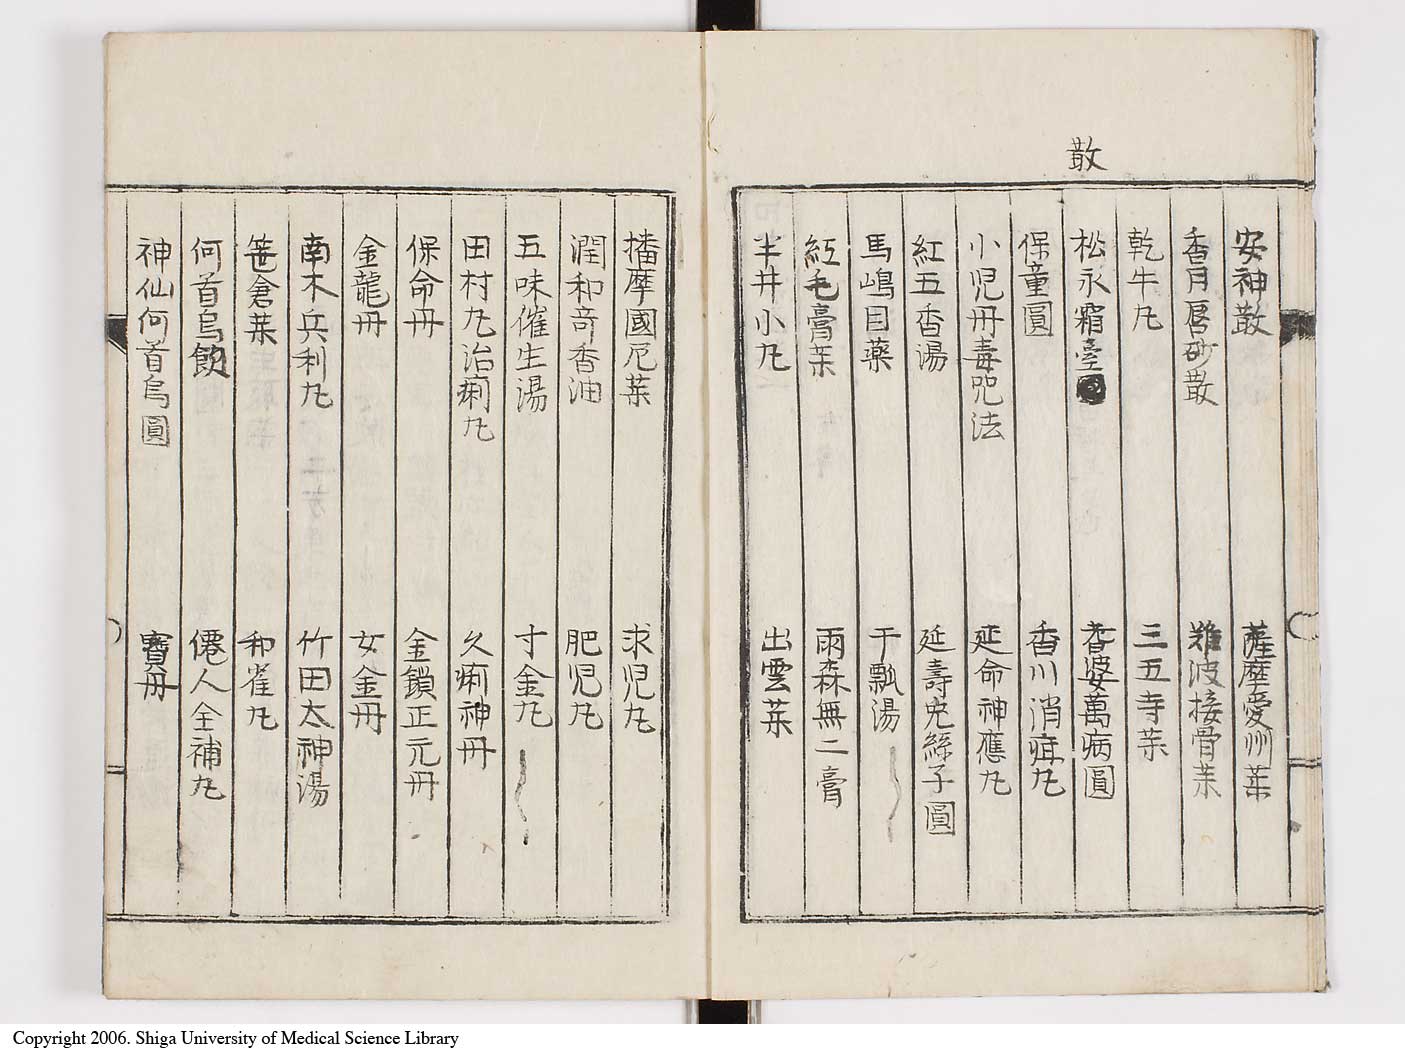 散
安神散　薩摩愛州藥
香月唇砂散　難波接骨藥
乾牛丸　三五寺藥
松永霜臺　香婆萬病圓
保童圓　香川消疳丸
小児丹毒咒法　延命神應丸
紅五香湯　延壽兔絲子圓
馬嶋目藥　干瓢湯
紅毛膏藥　雨森無二膏
半井小丸　出雲藥
播摩國厄藥　求児丸
潤和奇香油　肥児丸
五味催生湯　寸金丸
田村丸治痢丸　久痢神丹
保命丹　金鎖正元丹
金龍丹　女金丹
南木兵利丸　竹田太神湯
笹倉藥　和雀丸
何首烏飲　僊人全補丸
神仙何首烏圓　寶丹
Copyright 2006. Shiga University of Medical Science Library